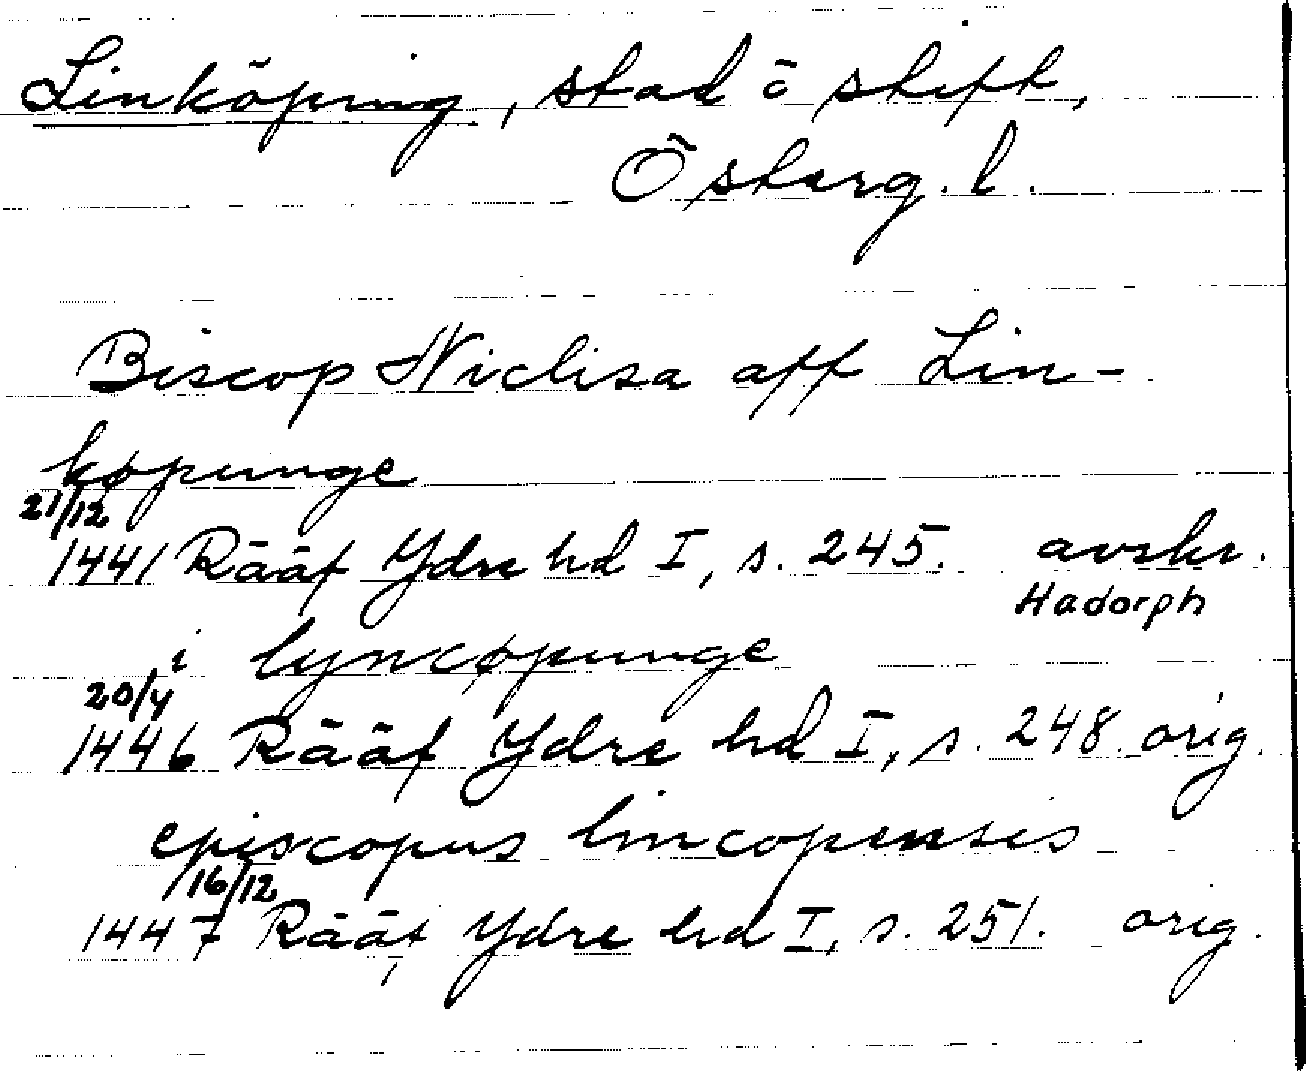 Linköping, stad ö stift,
Österg. l.
Biscop Niclisa aff Lin-
køpunge
21/12
1441 Rääf Ydre hd I, s. 245. avskr.
Hadorph
i lyncøpunge
20/4
1446 Rääf Ydre hd I, s. 248 orig.
episcopus lincopensis
16/12
1447 Rääf Ydre hd I, s. 251. orig.